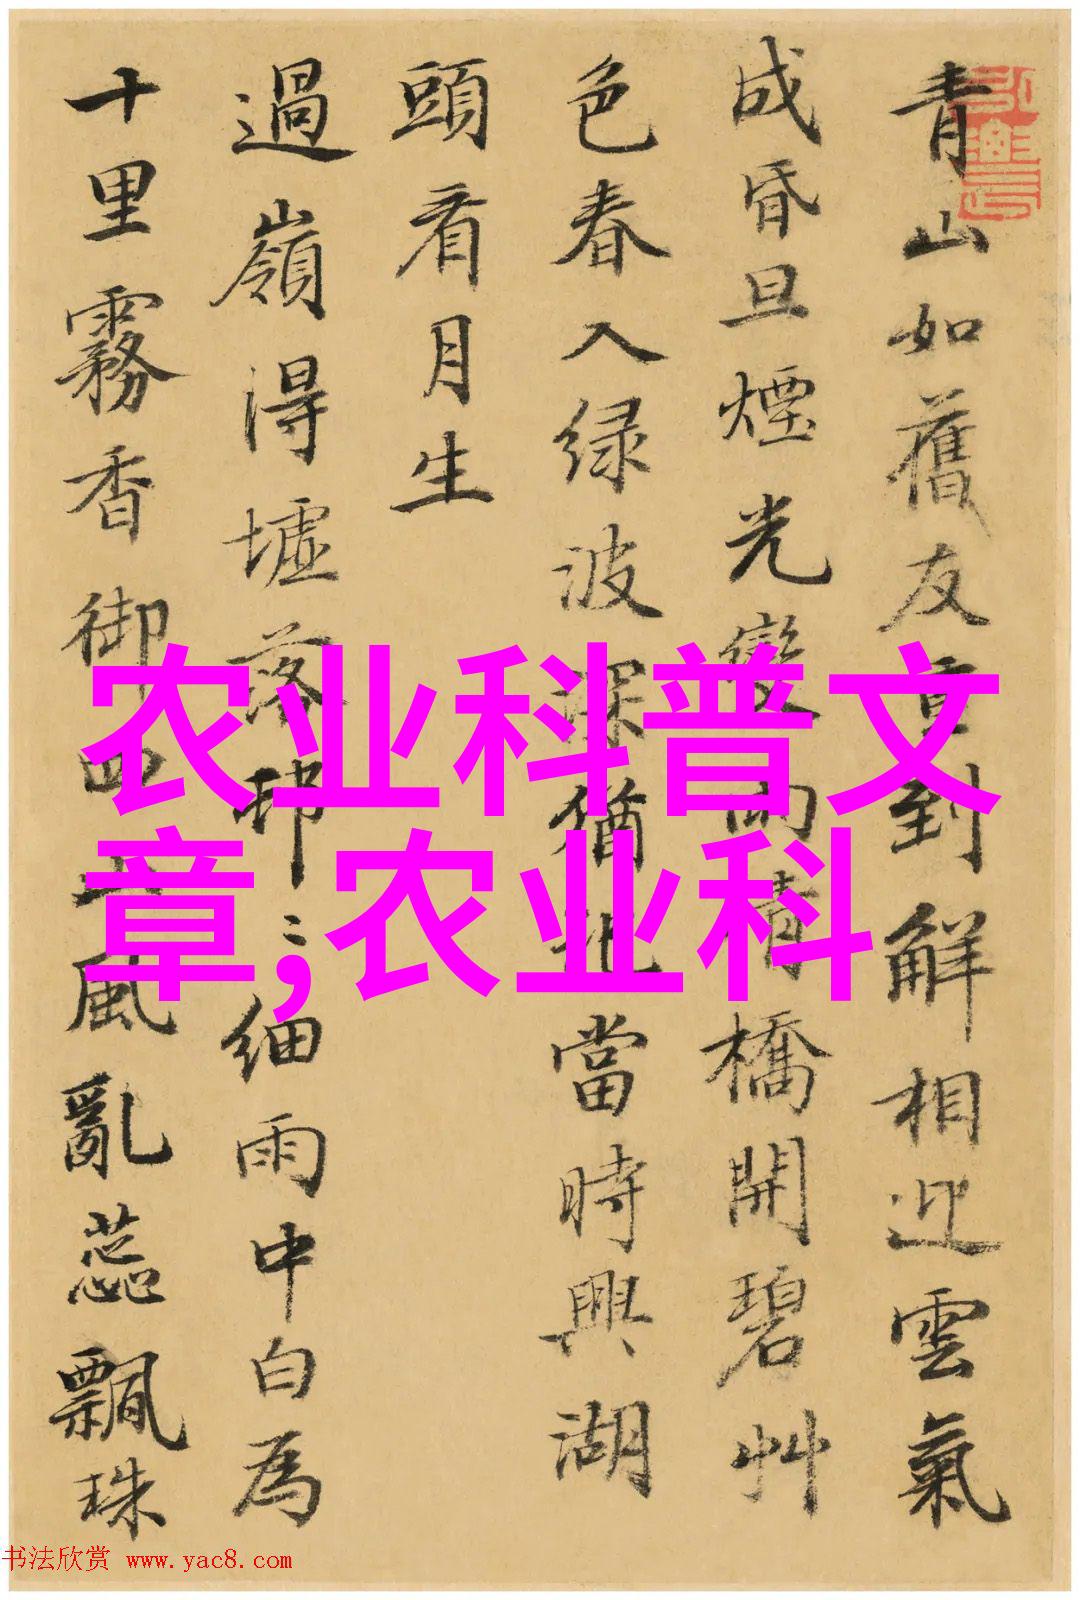 青山如舊友重到解相迎雲氣
成昏旦煙光變雨晴橋開碧艸
色春入绿波深猶記當時興湖
頭看月生
過嶺得墟落邨〻細雨中白為
十里霧香御四風亂蕊飄珠
农业科普文
章;农业科
书法欣赏 www.yac8.com